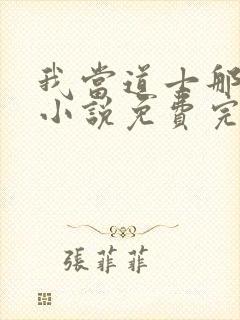 我當道士那
小說免費完
張菲菲